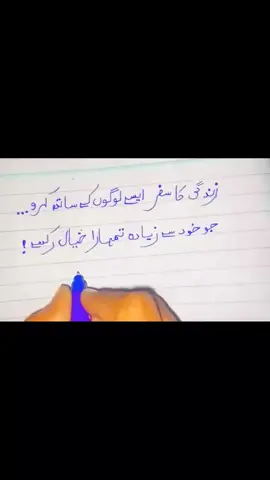 زندگی کا سفر ایسے لوگوں کے ساتھ کرو...
جو خود سے زیادہ تمہارا خیال رکھے!